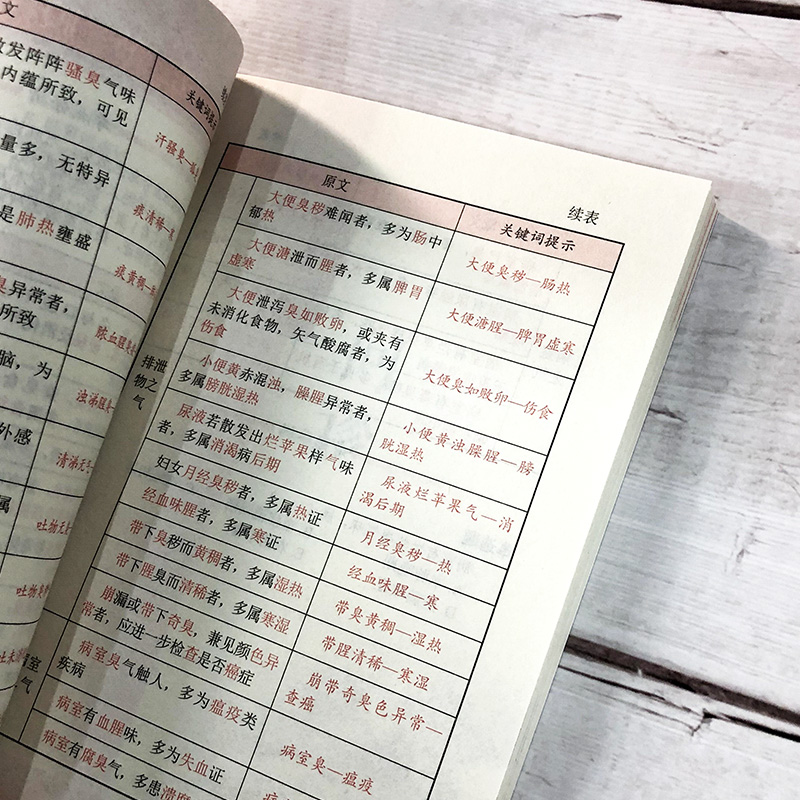 文
散发阵阵骚臭气味
内蕴所致，可见
量多，无特异
是肺热壅盛
臭异常者，
所致
脑，为
外感
属
关键词提示
汗骚臭—狐
痰清稀—寒
痰黄稠—
脓血腥臭—
浊涕腥
清涕无
吐物无
吐物
室
气
续表
原文
关键词提示
排泄
物之
气
大便臭秽难闻者，多为肠中
郁热
大便臭秽—肠热
大便溏泄而腥者，多属脾胃
虚寒
大便溏腥—脾胃虚寒
大便泄泻臭如败卵，或夹有
未消化食物，矢气酸腐者，为
伤食
大便臭如败卵—伤食
小便黄赤混浊，臊腥异常者，
多属膀胱湿热
小便黄浊臊腥—膀
胱湿热
尿液若散发出烂苹果样气味
者，多属消渴病后期
尿液烂苹果气—消
渴后期
妇女月经臭秽者，多属热证
月经臭秽—热
经血味腥者，多属寒证
经血味腥—寒
带下臭秽而黄稠者，多属湿热
带臭黄稠—湿热
带下腥臭而清稀者，多属寒湿
带腥清稀—寒湿
崩漏或带下奇臭，兼见颜色异
常者，应进一步检查是否癌症
崩带奇臭色异常—
查癌
病室臭气触人，多为瘟疫类
疾病
病室臭—瘟疫
病室有血腥味，多为失血证
病室有腐臭气，多患溃腐